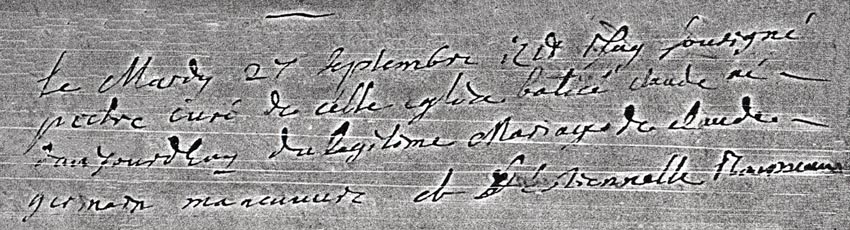 le Mardy 27 septembre 1718 Jay sousigné
pretre curé de cette eglise batisé claude né
d'aujourd'huy du legitime Mariage de claude
germain manœuvre et Estiennette Rousseau